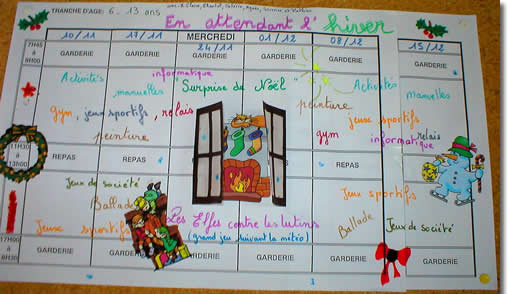 TRANCHE D'AGE: 6 - 13 ans
En attendant l'hiver
10/11 17/11 MERCREDI 24/11 01/12 08/12 15/12
7H45 à 9H00 GARDERIE GARDERIE GARDERIE GARDERIE GARDERIE GARDERIE
Activités manuelles
informatique
"Surprise de Noël"
Activités manuelles
gym, jeux sportifs, relais
peinture
peinture
gym
jeux sportifs
informatique
relais
11H30 à 13h00 REPAS REPAS REPAS REPAS REPAS
Jeux de société
Ballade
Jeux sportifs
Les Elfes contre les lutins
(grand jeu suivant la météo)
Jeux sportifs
Ballade
Jeux de société
17H00 GARDERIE GARDERIE GARDERIE GARDERIE GARDERIE